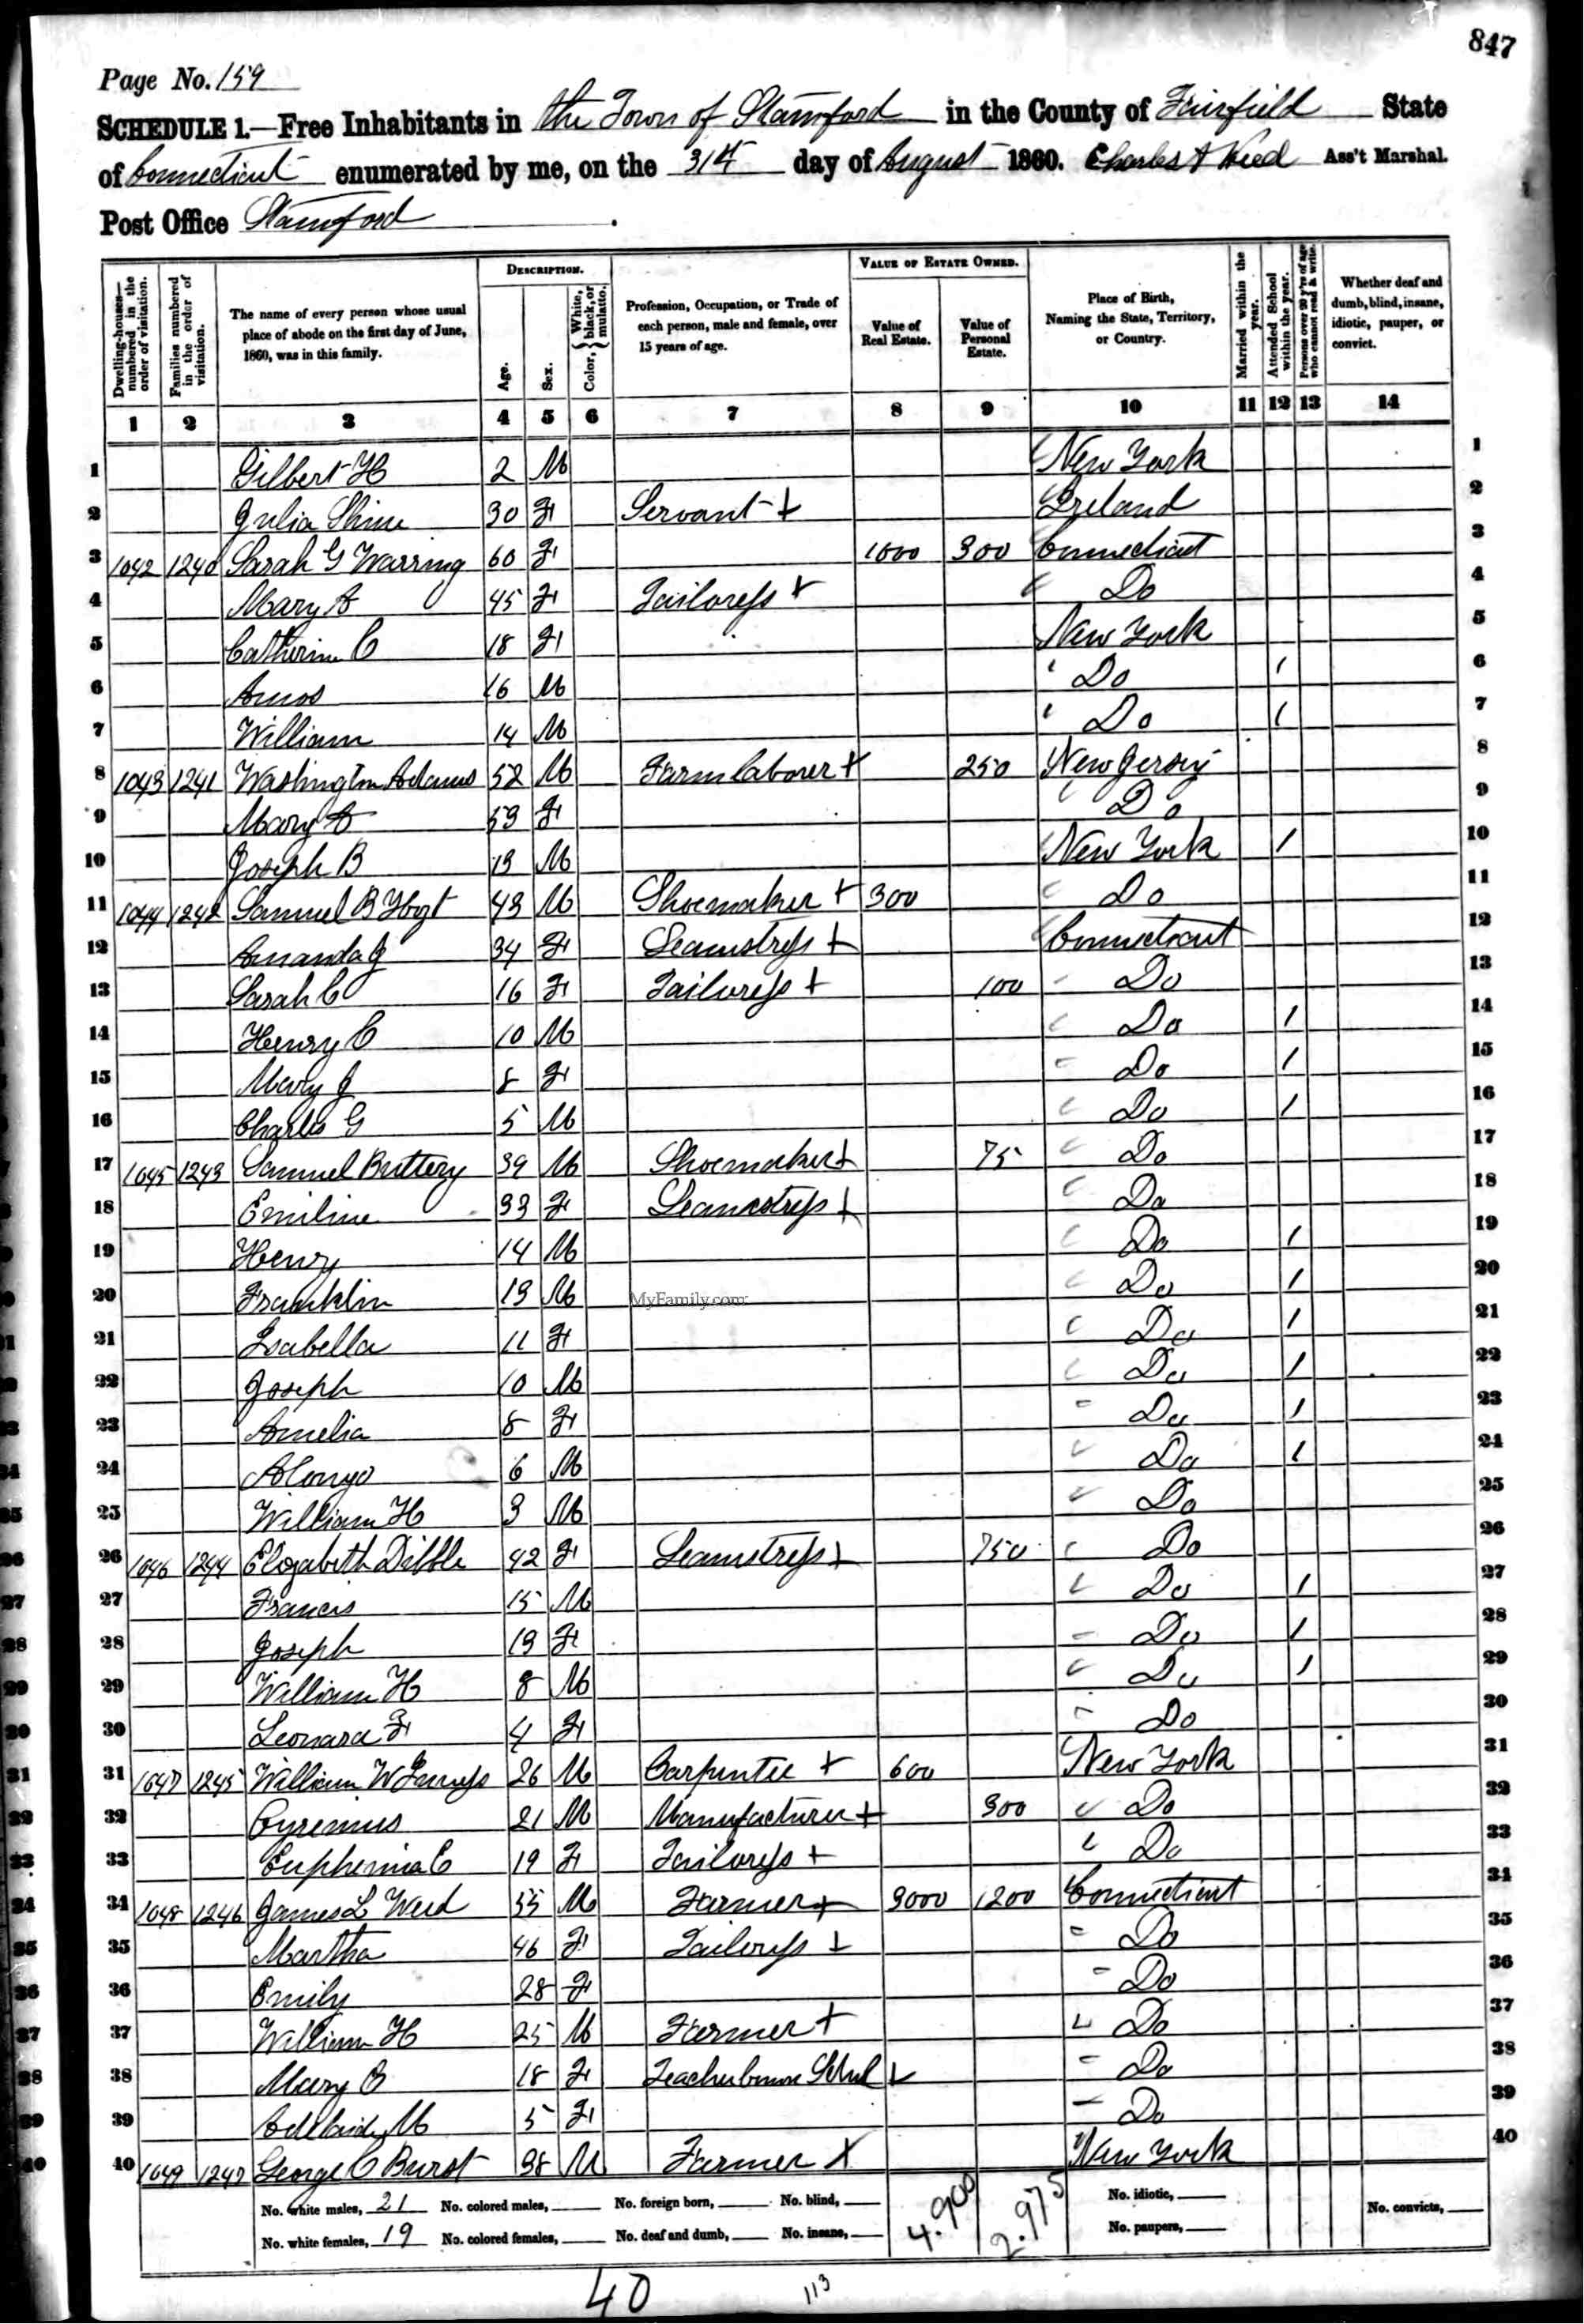 847
Page No. 159
SCHEDULE 1.—Free Inhabitants in the Town of Stamford in the County of Fairfield State
of Connecticut enumerated by me, on the 31st day of August 1860. Charles A Weed Ass't Marshal.
Post Office Stamford.
Dwelling-houses— numbered in the order of visitation.
Families numbered in the order of visitation.
The name of every person whose usual place of abode on the first day of June, 1860, was in this family.
DESCRIPTION.
Age.
Sex.
Color, { White, black, or mulatto.
Profession, Occupation, or Trade of each person, male and female, over 15 years of age.
VALUE OF ESTATE OWNED.
Value of Real Estate.
Value of Personal Estate.
Place of Birth, Naming the State, Territory, or Country.
Married within the year.
Attended School within the year.
Persons over 20 y'rs of age who cannot read & write.
Whether deaf and dumb, blind, insane, idiotic, pauper, or convict.
1 2 3 4 5 6 7 8 9 10 11 12 13 14
1 Gilbert H 2 M New York 1
2 Julia Shine 30 F Servant + Ireland 2
3 1042 1240 Sarah G Warring 60 F 1000 300 Connecticut 3
4 Mary A 45 F Tailoress + Do 4
5 Catherine C 18 F New York 5
6 Amos 16 M Do / 6
7 William 14 M Do / 7
8 1043 1241 Washington Adams 52 M Farm laborer + 250 New Jersey 8
9 Mary A 53 F Do 9
10 Joseph B 13 M New York / 10
11 1044 1242 Samuel B Hoyt 43 M Shoemaker + 300 Do 11
12 Amanda J 34 F Seamstress + Connecticut 12
13 Sarah C 16 F Tailoress + 100 Do 13
14 Henry C 10 M Do / 14
15 Mary J 8 F Do / 15
16 Charles G 5 M Do / 16
17 1045 1243 Samuel Buttery 39 M Shoemaker + 75 Do 17
18 Emiline 33 F Seamstress + Do 18
19 Henry 14 M Do / 19
20 Franklin 13 M MyFamily.com Do / 20
21 Isabella 11 F Do / 21
22 Joseph 10 M Do / 22
23 Amelia 8 F Do / 23
24 Alonzo 6 M Do / 24
25 William H 3 M Do 25
26 1046 1244 Elizabeth Dibble 42 F Seamstress + 750 Do 26
27 Francis 15 M Do / 27
28 Joseph 13 F Do / 28
29 William H 8 M Do / 29
30 Leonara F 4 F Do 30
31 1047 1245 William W 26 M Carpenter + 600 New York 31
32 Cyrenius 21 M Manufacturer + 300 Do 32
33 Euphemia C 19 F Tailoress + Do 33
34 1048 1246 James L Weed 55 M Farmer + 3000 1200 Connecticut 34
35 Martha 46 F Tailoress + Do 35
36 Emily 28 F Do 36
37 William H 25 M Farmer + Do 37
38 Mary 18 F Teacher School + Do 38
39 Adelaide M 5 F Do 39
40 1049 1247 George C Burst 38 M Farmer X New York 40
No. white males, 21 No. colored males, No. foreign born, No. blind, 4.900 2.975 No. idiotic, No. convicts,
No. white females, 19 No. colored females, No. deaf and dumb, No. insane, No. paupers,
40 113